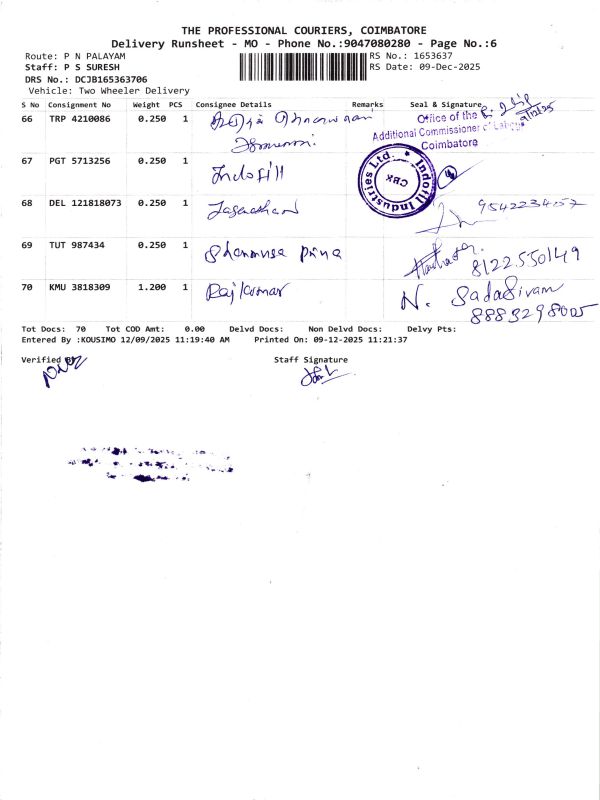 THE PROFESSIONAL COURIERS, COIMBATORE
Delivery Runsheet - MO - Phone No.:9047080280 - Page No.:6
Route: P N PALAYAM
RS No.: 1653637
Staff: P S SURESH
RS Date: 09-Dec-2025
DRS No.: DCJB165363706
Vehicle: Two Wheeler Delivery
S No Consignment No Weight PCS Consignee Details Remarks Seal & Signature
66 TRP 4210086 0.250 1
Office of the
Additional Commissioner of Labour
Coimbatore
9/12/25
67 PGT 5713256 0.250 1 Indofill
Indofil Industries Ltd.
CBE
68 DEL 121818073 0.250 1 Jaganathan
9542234257
69 TUT 987434 0.250 1 Shanmuga Priya
8122550149
70 KMU 3818309 1.200 1 Rajkumar N. Sadasivam
8883298005
Tot Docs: 70 Tot COD Amt: 0.00 Delvd Docs: Non Delvd Docs: Delvy Pts:
Entered By :KOUSIMO 12/09/2025 11:19:40 AM Printed On: 09-12-2025 11:21:37
Verified By
Staff Signature